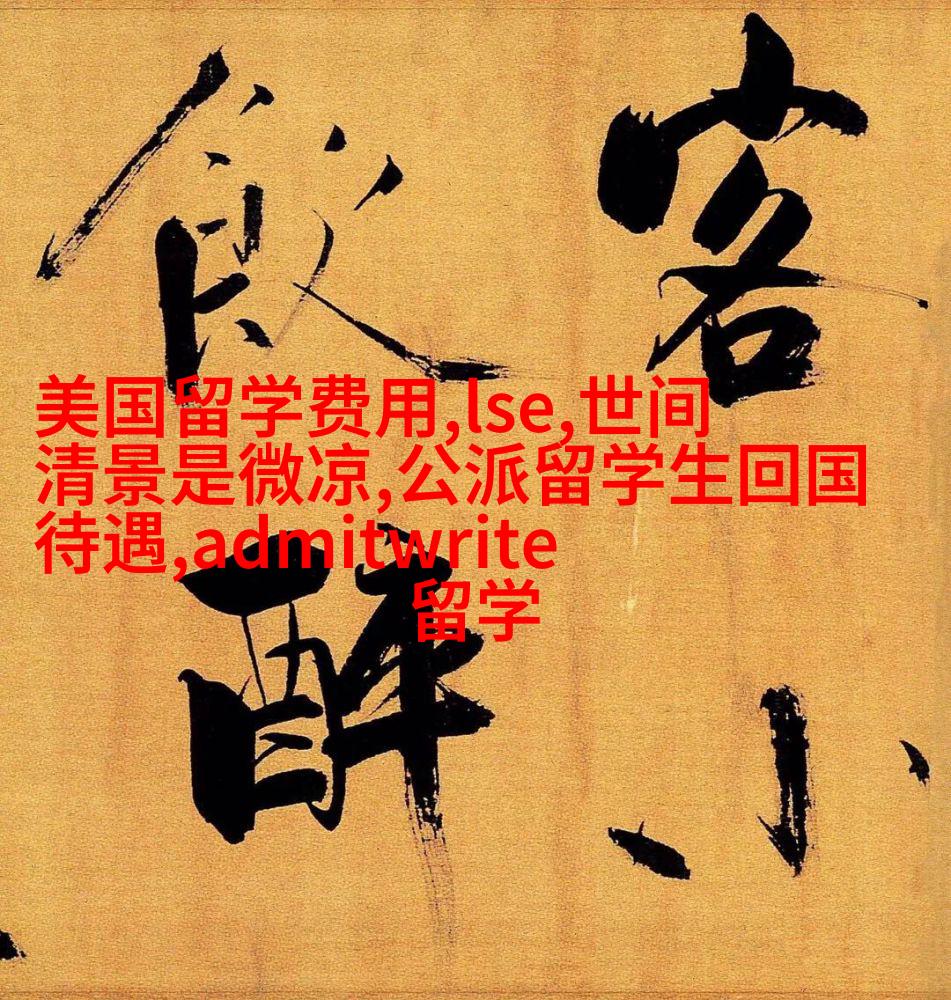 客小
飲醉
美国留学费用,lse,世间
清景是微凉,公派留学生回国
待遇,admitwrite
留学